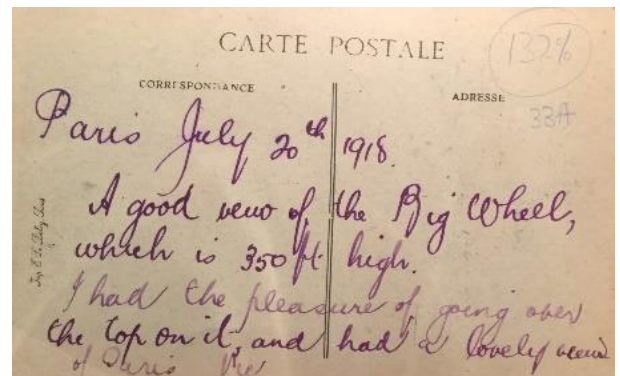 CARTE POSTALE
132%
CORRESPONDANCE
ADRESSE
33A
Paris July 20th 1918.
A good veiw of the Big Wheel,
which is 350 ft. high.
I had the pleasure of going over
the top on it, and had a lovely veiw
of Paris